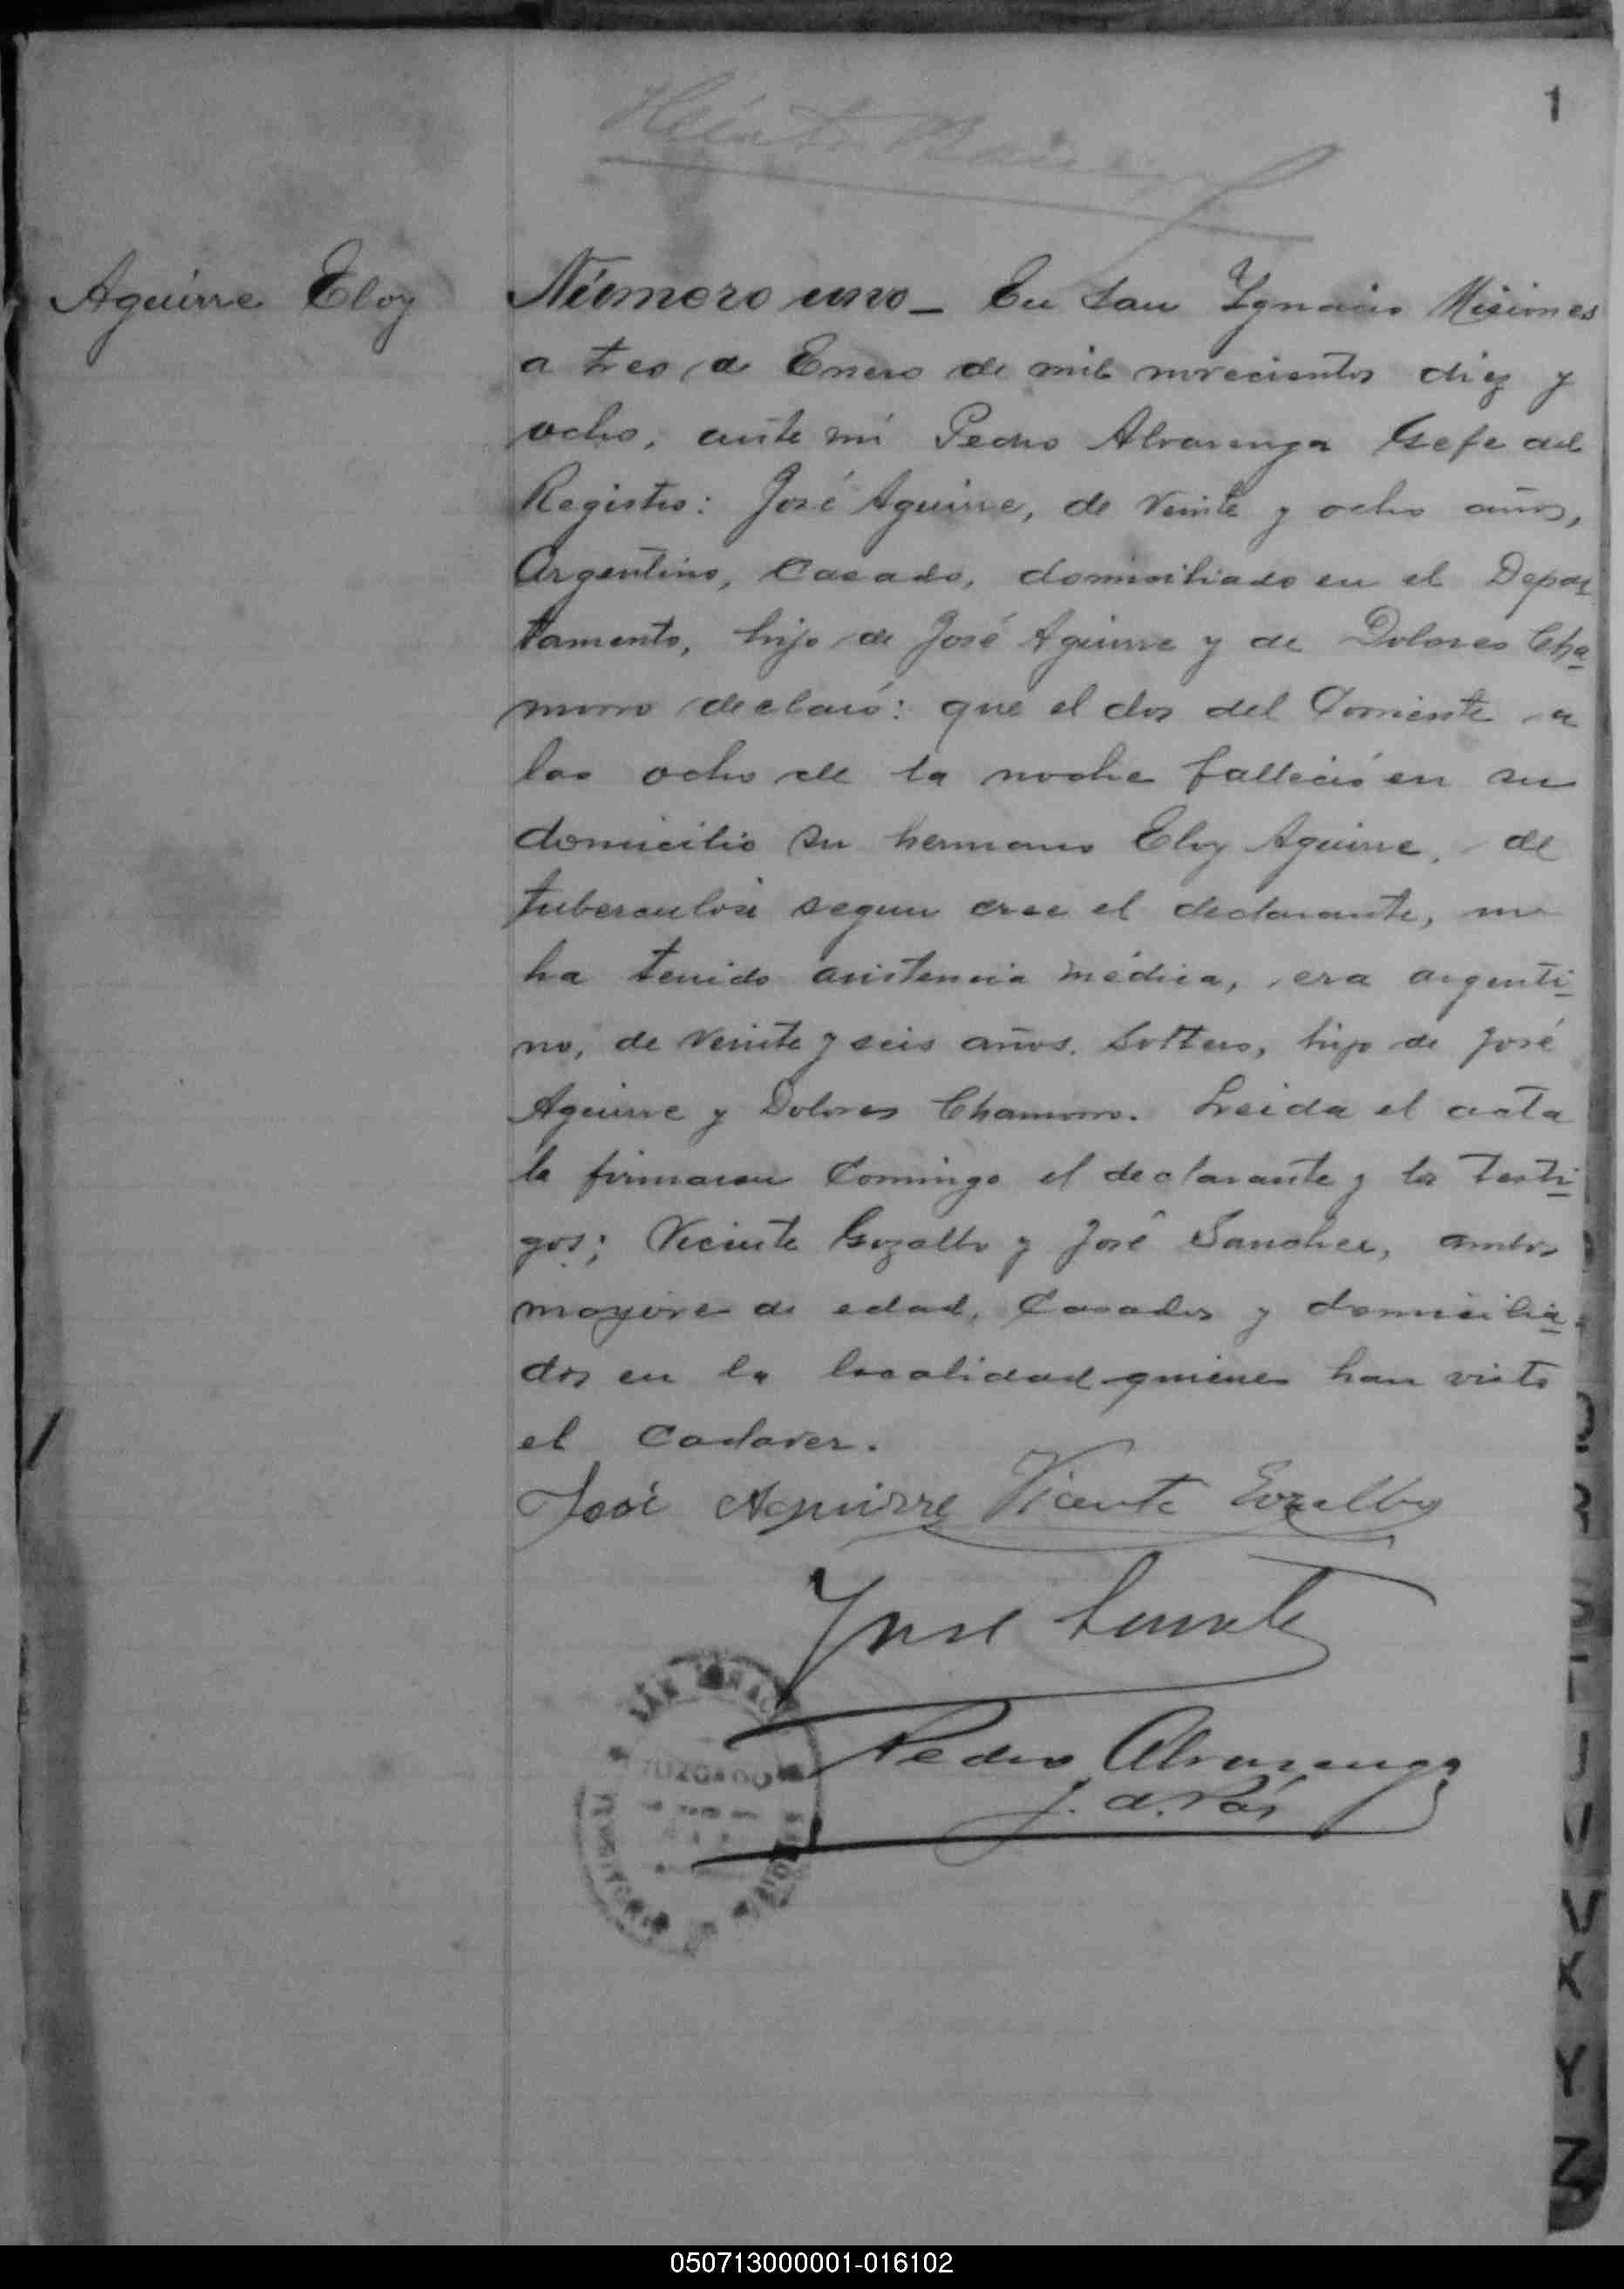 1
Aguirre Eloy
Número uno_ En San Ygnacio Misiones
a tres de Enero de mil novecientos diez y
ocho, ante mí Pedro Alvarenga Gefe del
Registro: José Aguirre, de veinte y ocho años,
Argentino, Casado, domiciliado en el Depar
tamento, hijo de José Aguirre y de Dolores Cha
morro declaró: que el dos del Corriente a
las ocho de la noche falleció en su
domicilio su hermano Eloy Aguirre, de
tuberculosis segun cree el declarante, no
ha tenido asistencia médica, era argenti
no, de veinte y seis años. Soltero, hijo de José
Aguirre y Dolores Chamorro. Leida el acta
la firmaron Conmigo el declarante y los testi
gos; Vicente Gozalbo y José Sanchez, ambos
mayores de edad, Casados y domicilia
dos en la localidad quienes han visto
el Cadaver.
José Aguirre Vicente Gozalbo
José
SAN IGNACIO
JUZGADO
TERRITORIO DE MISIONES
Pedro Alvarenga
J. de Paz
U
V
X
Y
Z
050713000001-016102